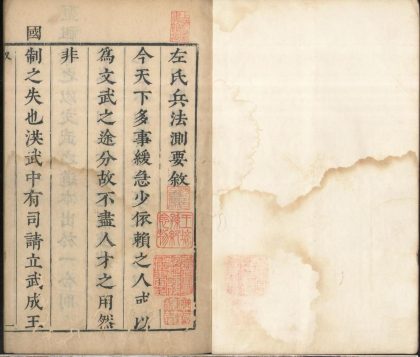 左氏兵法測要敘
今天下多事緩急少依賴之人或以
為文武之途分故不盡人才之用然
非
國制之失也洪武中有司請立武成王